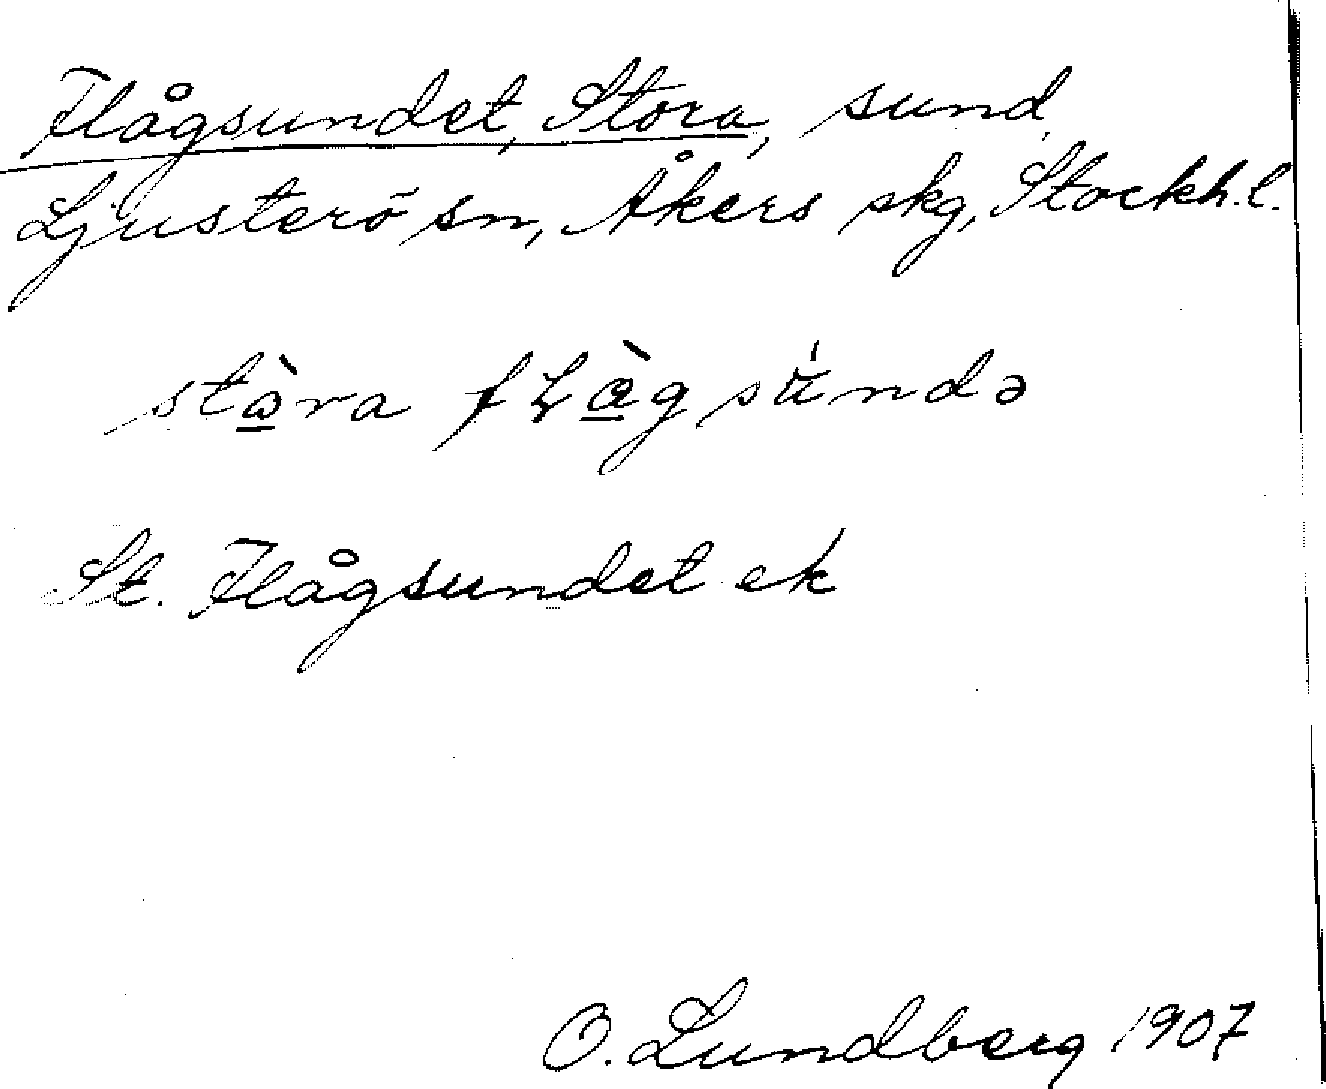 Flågsundet, Stora, sund,
Ljusterö sn, Åkers skg, Stockh.l.
St. Flågsundet ek
O. Lundberg 1907